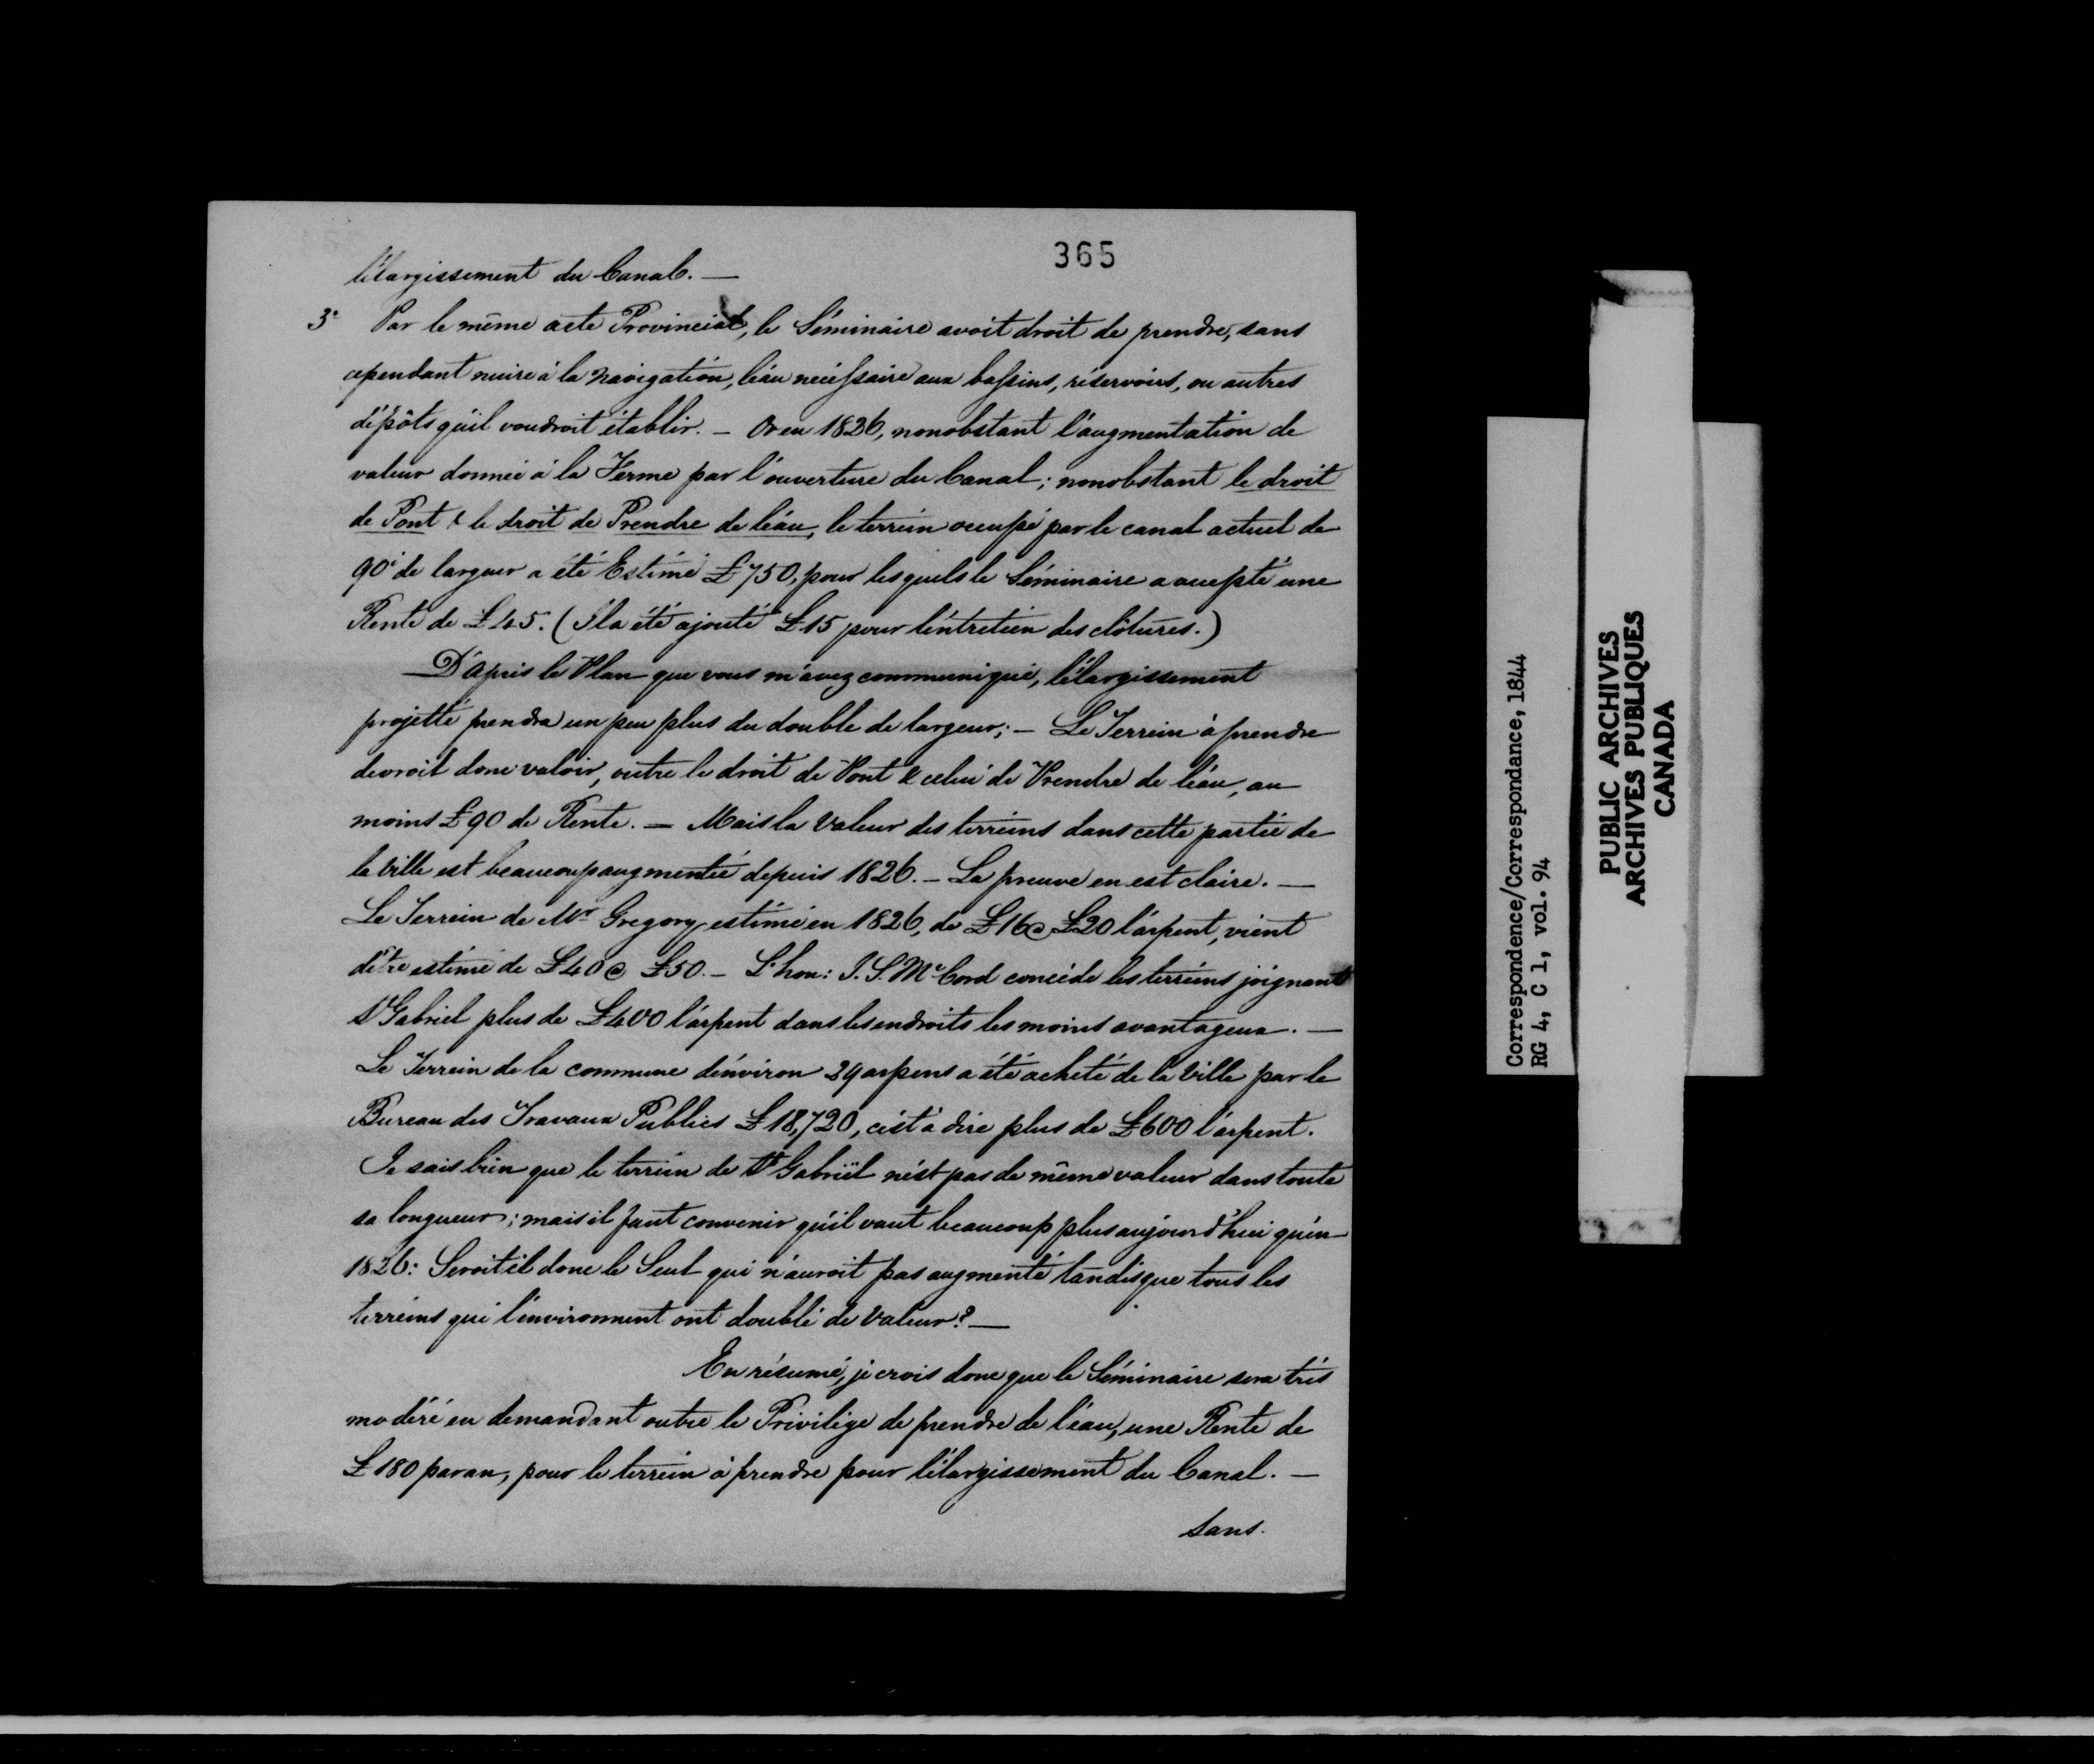 365
l'élargissement du Canal. —
3° Par le même acte Provincial, le Séminaire avoit droit de prendre, sans
cependant nuire à la Navigation, l'eau nécessaire aux bassins, réservoirs, ou autres
dépôts qu'il voudroit établir. — Or en 1826, nonobstant l'augmentation de
valeur donnée à la Ferme par l'ouverture du Canal; nonobstant le droit
de Pont & le droit de Prendre de l'eau, le terrein occupé par le canal actuel de
90' de largeur a été Estimé £750, pour lesquels le Séminaire a accepté une
Rente de £45. (Il a été ajouté £15 pour l'entretien des clôtures.)
D'après le Plan que vous m'avez communiqué, l'élargissement
projetté prendra un peu plus du double de largeur; — Le Terrein à prendre
devroit donc valoir, outre le droit de Pont & celui de Prendre de l'eau, au
moins £90 de Rente. — Mais la Valeur des terreins dans cette partie de
la Ville est beaucoup augmentée depuis 1826. — La preuve en est claire. —
Le Terrein de Mr Gregory, estimé en 1826, de £16 @ £20 l'arpent, vient
d'être estimé de £40 @ £50. — L'hon: J. S. McCord concède les terreins joignant
St Gabriel plus de £400 l'arpent dans les endroits les moins avantageux. —
Le Terrein de la commune d'environ 29 arpens a été acheté de la Ville par le
Bureau des Travaux Publics £18,720, c'est à dire plus de £600 l'arpent.
Je sais bien que le terrein de St Gabriël n'est pas de même valeur dans toute
sa longueur; mais il faut convenir qu'il vaut beaucoup plus aujourd'hui qu'en
1826: Seroit il donc le Seul qui n'auroit pas augmenté tandisque tous les
terreins qui l'environnent ont doublé de Valeur? —
En résumé, je crois donc que le Séminaire sera très
modéré en demandant outre le Privilège de prendre de l'eau, une Rente de
£180 par an, pour le terrein à prendre pour l'élargissement du Canal. —
Sans.
Correspondence/Correspondance, 1844
RG 4, C 1, vol. 94
PUBLIC ARCHIVES
ARCHIVES PUBLIQUES
CANADA